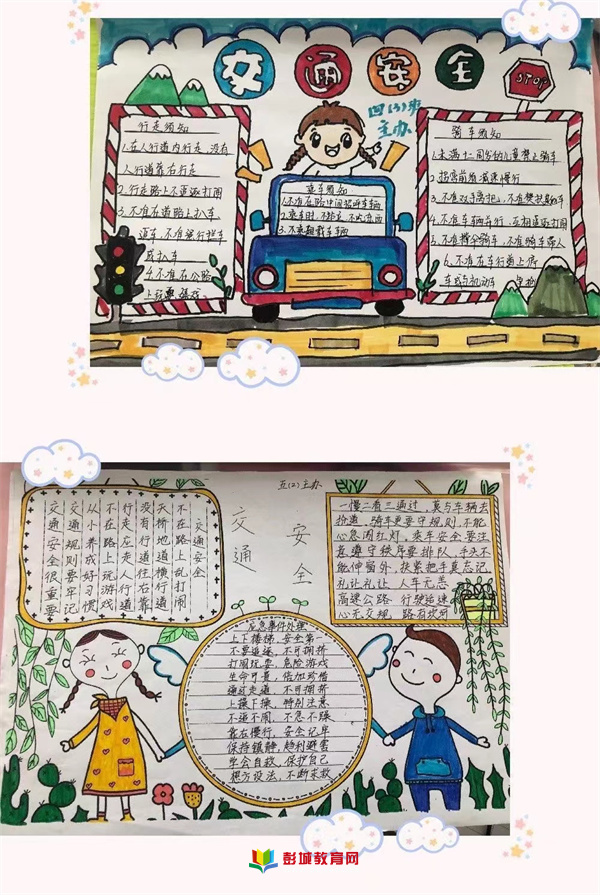 交通安全
STOP
四(3)班
主办
行走须知
1.在人行道内行走,没有
人行道靠右行走
2.行走路上不要追打闹
3.不准在道路上扒车
追车,不准强行拦车
4.不准在公路
上玩耍嬉戏
乘车须知
2.乘车时,不
3.不乘超载车辆
骑车须知
1.未满十二周岁的儿童禁止骑车
减速慢行
3.不准双手离把,不准攀扶其他车
互相追逐打闹
5.不准撑伞骑车,不准骑车带人
6.不准在车行道上停
车或与机动车
五(2)主办
交通安全
交通安全
不在路上乱打闹
天桥地道横行道
没有行道往右靠
行走应走人行道
不在路上玩游戏
从小养成好习惯
交通规则要牢记
交通安全很重要
一慢二看三通过,莫与车辆去
抢道。骑车更要守规则,不能
心急闯红灯。乘车安全要注
意遵守秩序要排队,手头不
能伸窗外,扶紧把手莫忘记
礼让礼让 人车无恙
高速公路 行驶追速
心无交规 路有坎坷
应急事件处理
上下楼梯,安全第一
不要追逐,不可拥挤
打闹玩耍,危险游戏
生命可贵,倍加珍惜
通过走道,不可拥挤
上操下操,特别注意
不追不闹,不急不躁
靠右慢行,安全记牢
保持镇静,趋利避害
学会自救,保护自己
想方设法,不断求救
彭城教育网